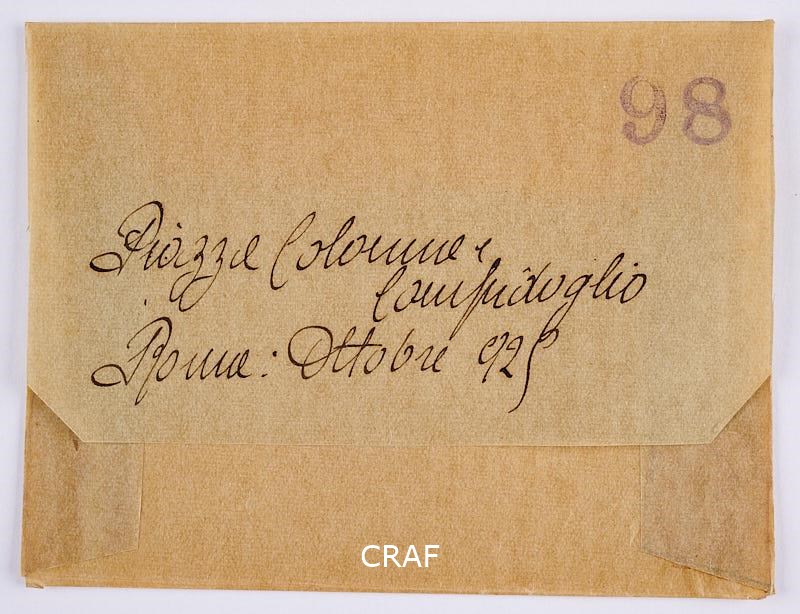 98
Piazza Colonna e
Campidoglio
Roma: Ottobre 925
CRAF